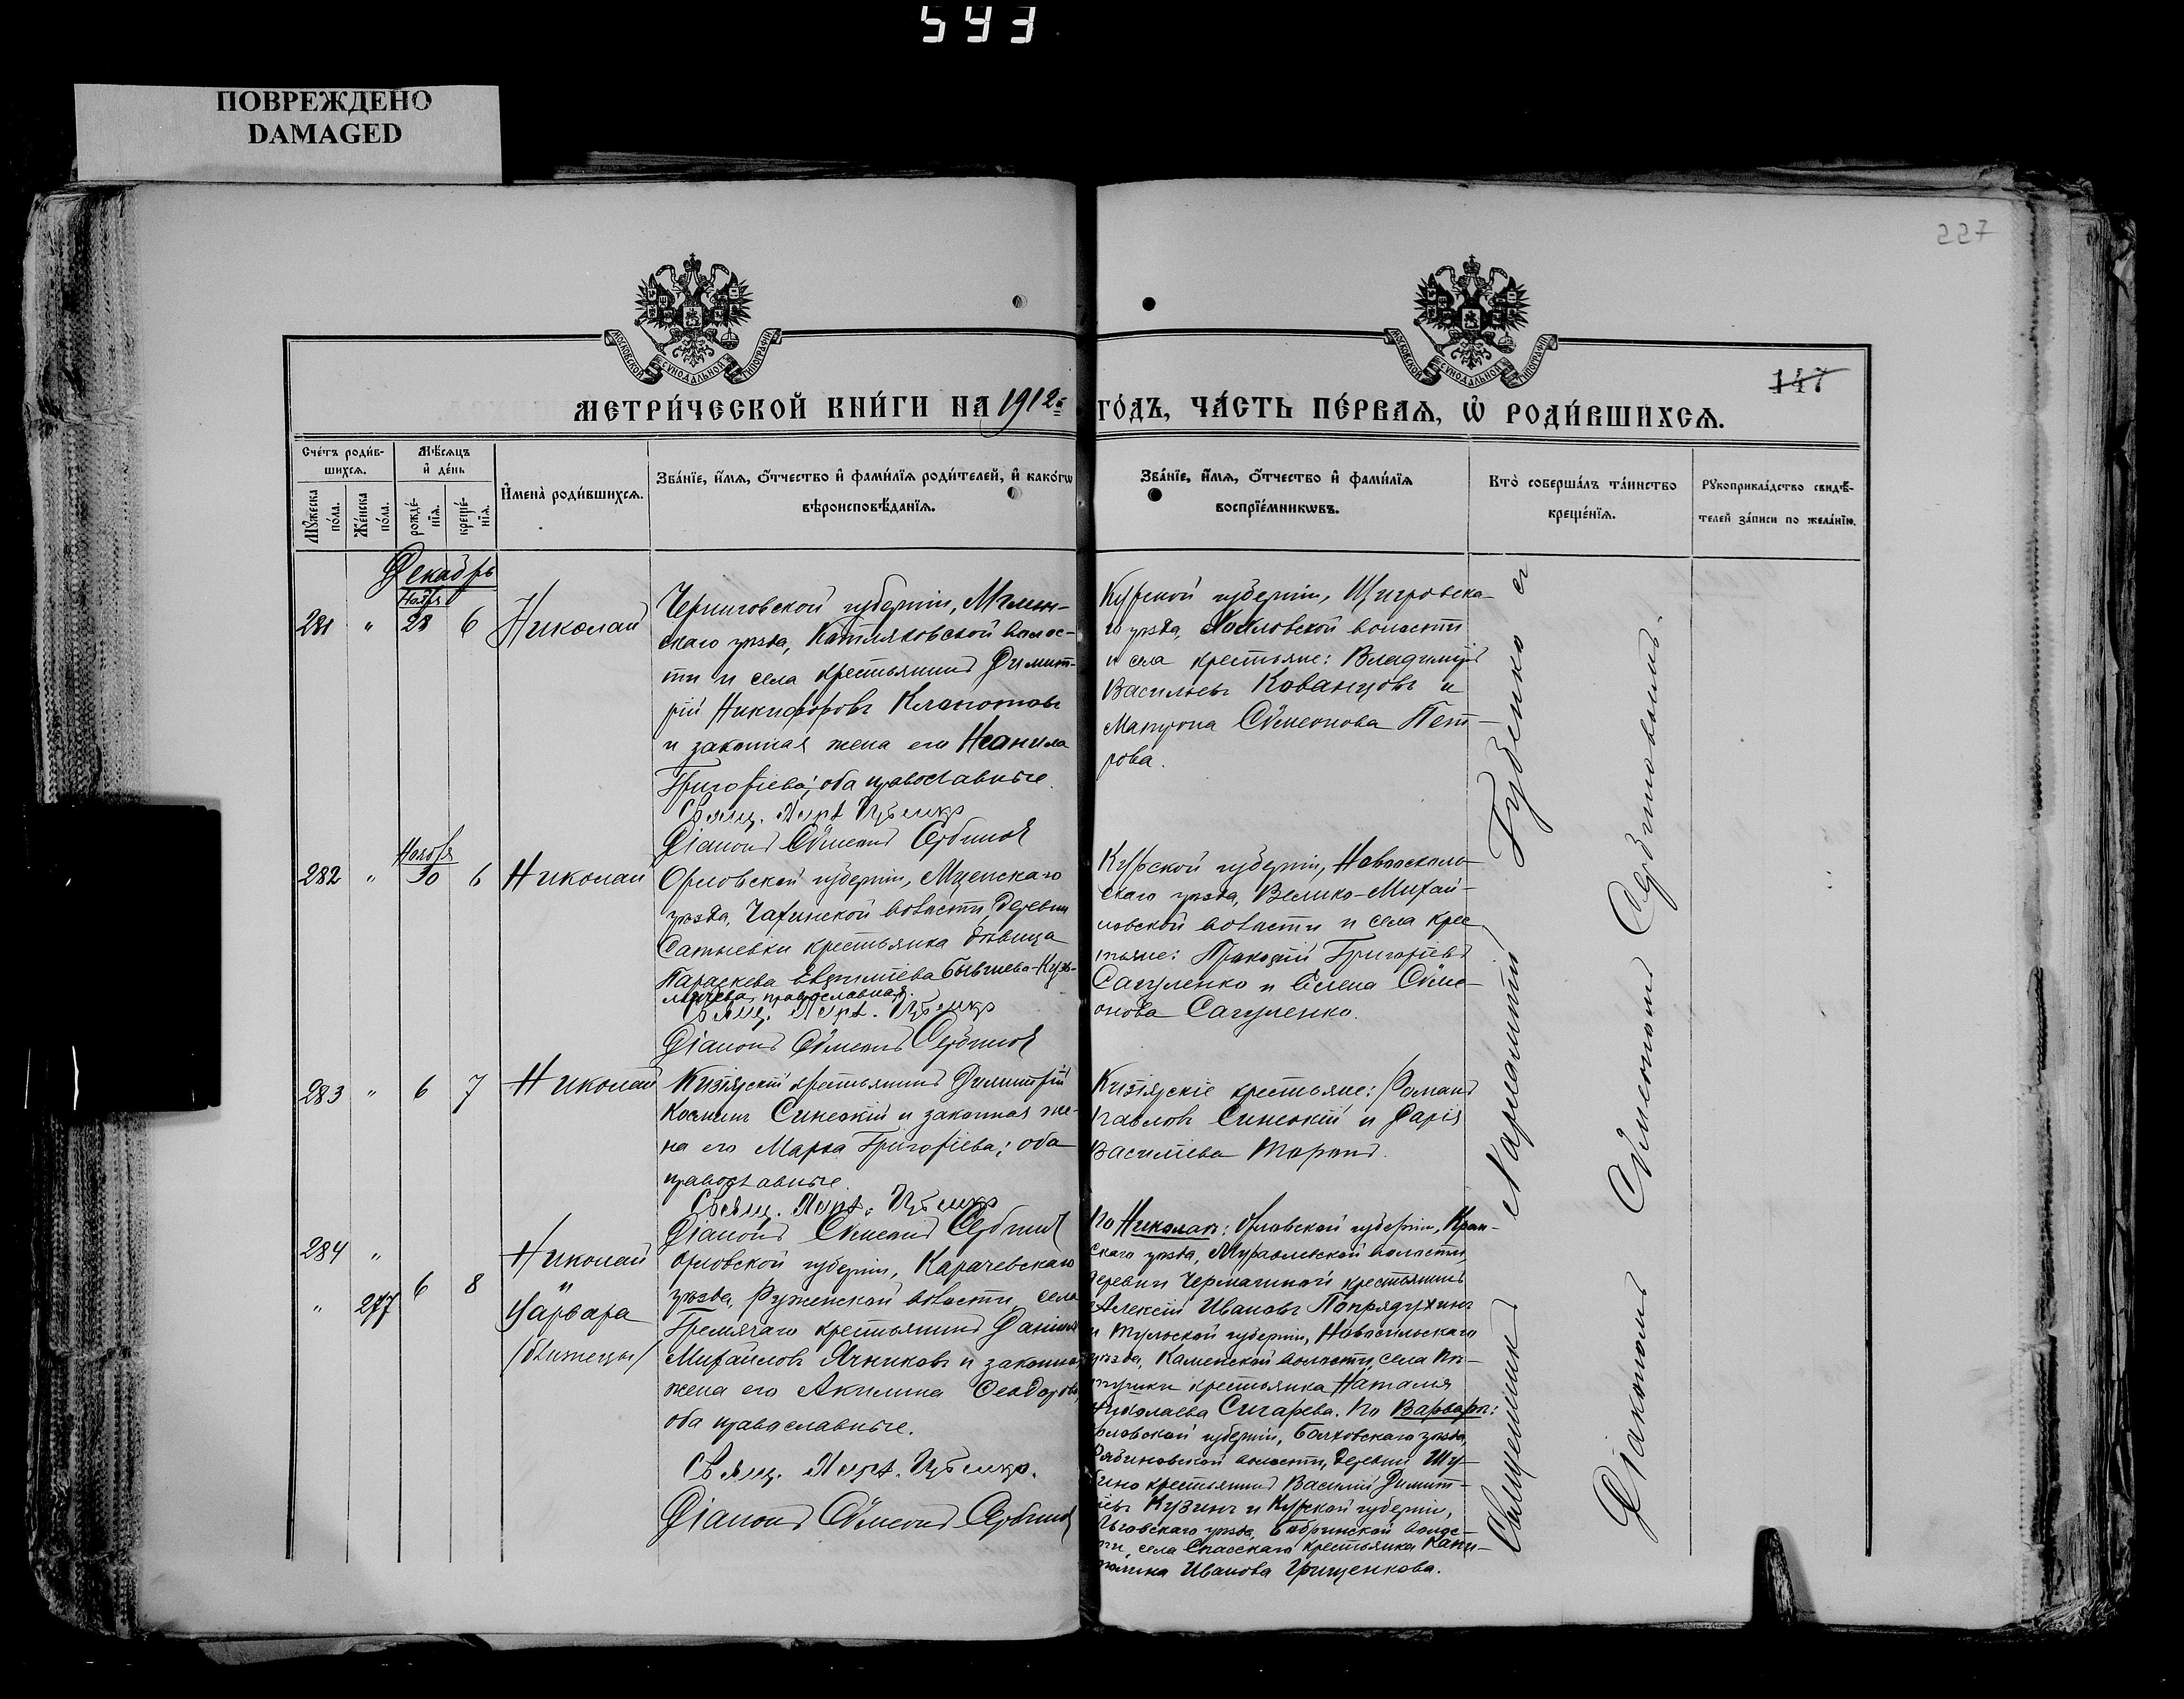 593
ПОВРЕЖДЕНО
DAMAGED
227
МОСКОВСКОЙ СУНОДАЛЬНОЙ ТИПОГРАФІИ
МОСКОВСКОЙ СУНОДАЛЬНОЙ ТИПОГРАФІИ
147
МЕТРИ́ЧЕСКОЙ КНИ́ГИ НА 1912 го́дъ, ЧА́СТЬ ПЕ́РВАѦ, Ѡ҆ РОДИ́ВШИХСѦ.
Сче́тъ роди́в-
шихсѧ.
Мѣ́сѧцъ
и҆ де́нь
Мꙋ́жеска по́ла.
Же́нска по́ла.
рожде́-
нїѧ.
креще́-
нїѧ.
И҆мена̀ роди́вшихсѧ.
Зва́нїе, и҆́мѧ, ѻ҆́тчество и҆ фами́лїѧ роди́телей, и҆ како́гѡ
вѣроисповѣ́данїѧ.
Зва́нїе, и҆́мѧ, ѻ҆́тчество и҆ фами́лїѧ
воспрїе́мникѡвъ.
Кто̀ соверша́лъ та́инство
креще́нїѧ.
Рꙋкоприкла́дство свидѣ́-
телей за́писи по жела́нїю.
Декабрь
281 " Ноября 28 6 Николай
Черниговской губерніи, Мглин-
скаго уѣзда, Котляковской волос-
ти и села крестьянинъ Димит-
рій Никифоровъ Клапотовъ
и законная жена его Неонила
Григоріева; оба православные.
Свящ. Харл. Губенко
Діаконъ Сѵмеонъ Сербиновъ
Курской губерніи, Щигровска-
го уѣзда, волости
и села крестьяне: Владиміръ
Васильевъ Кованцовъ и
Матрона Сѵмеонова Пет-
рова.
282 " Ноября 30 6 Николай
Орловской губерніи, Мценскаго
уѣзда, волости, деревни
крестьянка дѣвица
Параскева Евѳиміева Бывшева-Кузь-
мичева, православная.
Свящ. Харл. Губенко
Діаконъ Сѵмеонъ Сербиновъ
Курской губерніи, Новоосколь-
скаго уѣзда, Велико-Михай-
ловской волости и села крес-
тьяне: Прокопій Григоріевъ
Сагуленко и Елена Сѵме-
онова Сагуленко.
283 " 6 7 Николай
Кизіярскій крестьянинъ Димитрій
Космин Синеокій и законная же-
на его Марѳа Григоріева; оба
православные.
Свящ. Харл. Губенко
Діаконъ Сѵмеонъ Сербиновъ
Кизіярскіе крестьяне: Романъ
Павловъ Синеокій и Дарія
Василіева Таранъ.
284 " Николай
и
" 277 6 8 Варвара
/близнецы/
Орловской губерніи, Карачевскаго
уѣзда, Руженской волости, села
Гремячаго крестьянинъ Даніилъ
Михайловъ Ячниковъ и законная
жена его Акилина Ѳеодорова,
оба православные.
Свящ. Харл. Губенко.
Діаконъ Сѵмеонъ Сербиновъ
По Николаѣ: Орловской губерніи,
скаго уѣзда, волости,
деревни крестьянинъ
Алексій Ивановъ Попрядухинъ
и Тульской губерніи, Новосильскаго
уѣзда, Каменской волости, села
крестьянка Наталія
Николаева Сигарева. По Варварѣ:
Орловской губерніи, Болховскаго уѣзда,
волости, деревни Шу-
бино крестьянинъ Василій Димит-
ріевъ Кузинъ и Курской губерніи,
Льговскаго уѣзда, Бобринской волос-
ти, села Спасскаго крестьянка Капи-
толина Иванова Грищенкова.
Священникъ Харлампій Губенко съ
Діакономъ Сѵмеономъ Сербиновымъ.